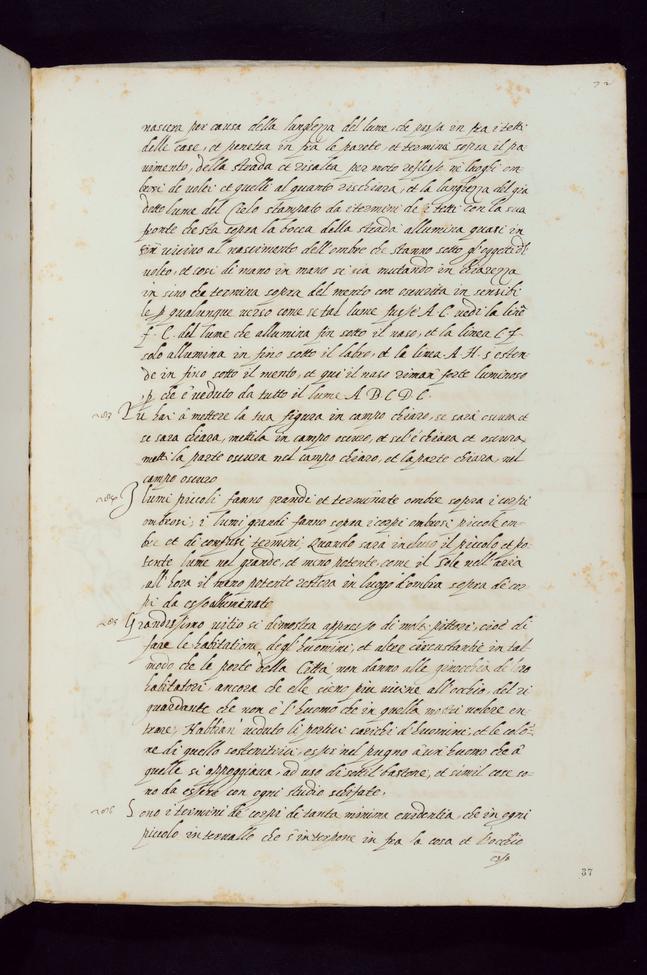 72
nascera per causa della lunghezza del lume, che passa in fra i tetti
delle case, et penetra in fra le parete, et termina sopra il pa-
uimento, della strada et risalta per moto reflesso ne luoghi om-
brosi de volti et quelli al quanto rischiara, et la lunghezza del gia
detto lume del Cielo stampato da i termini de i tetti con la sua
fronte che sta sopra la bocca della strada allumina quasi in
sin vicino al nascimento dell'ombre che stanno sotto gl'oggetti del
volto, et cosi di mano in mano si uia mutando in chiarezza
in sino che termina sopra del mento con oscurita insensibi-
le p qualunque verso come se tal lume fusse A C vedi la linea
f. C. del lume che allumina fin sotto il naso, et la linea C f.
solo allumina in fino sotto il labro, et la linea A. H. s'esten-
de in fino sotto il mento, et qui il naso riman forte luminoso
p che è veduto da tutto il lume A B C D C.
Tu hai à mettere la tua figura in campo chiaro, se sarà oscura et
se sara chiara, mettila in campo oscuro, et se l'è chiara et oscura
metti la parte oscura nel campo chiaro, et la parte chiara nel
campo oscuro
I lumi piccoli fanno grandi et terminate ombre sopra i corpi
ombrosi, i lumi grandi fanno sopra i corpi ombrosi piccole om-
bre et di confusi termini, Quando sarà incluso il piccolo et po-
tente lume nel grande, et meno potente, come il sole nell'aria
all'hora il meno potente restera in luogo d'ombra sopra de cor-
pi da esso alluminate
Grandissimo uitio si dimostra appresso di molti pittori, cioè di
fare le habitationi degli huomini, et altre circustantie in tal
modo che le porte della Città non danno alle ginocchia di loro
habitatori, ancora che elle sieno piu vicine all'occhio, del ri
guardante che non e l'huomo che in quella mostra volere en-
trare, Habbian' veduto li portici carichi d'huomini, et le colo-
ne di quello sostenitrici, esser nel pugno à un huomo che à
quelle si appoggiava, ad uso di sottil bastone, et simil cose so-
no da essere con ogni studio schifate,
Sono i termini de corpi di tanta minima evidentia, che in ogni
piccolo intervallo che s'interpone in fra la cosa et l'occhio
37